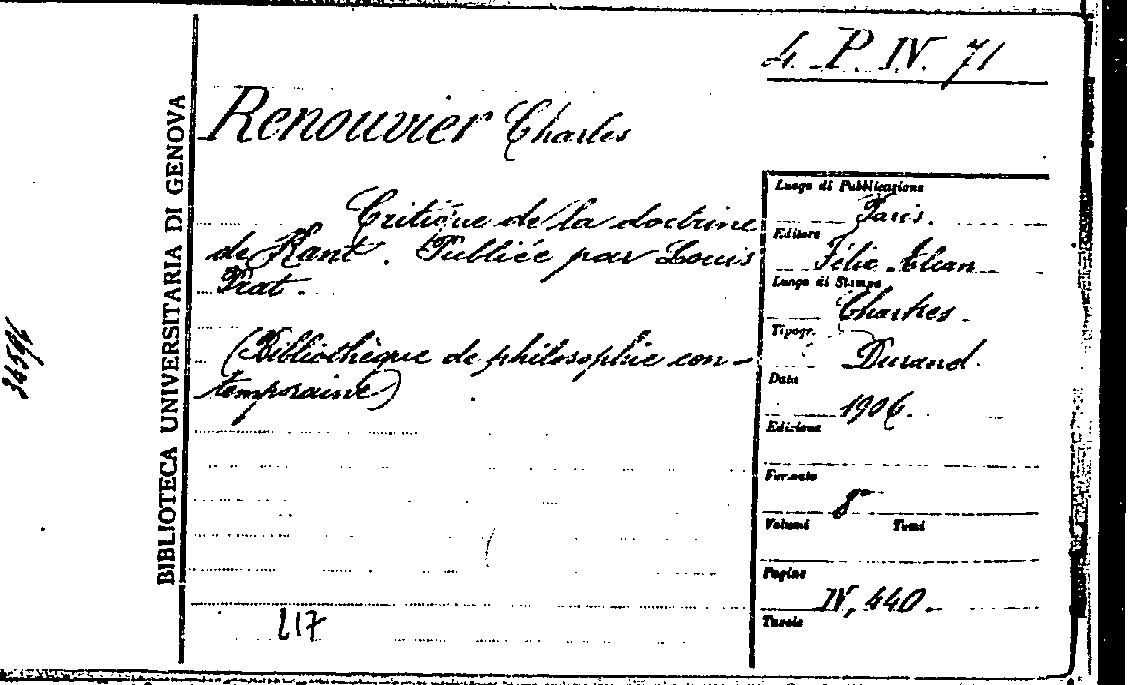 4. P. IV. 71
BIBLIOTECA UNIVERSITARIA DI GENOVA
Renouvier Charles
Critique de la doctrine
de Kant. Publiée par Louis
Prat.
(Bibliothèque de philosophie con-
temporaine)
217
Luogo di Pubblicazione
Paris.
Editore
Félix Alcan
Luogo di Stampa
Chartres.
Tipogr.
Durand.
Data
1906.
Edizione
Formato
8°
Volumi Tomi
Pagine
IV, 440.
Tavole